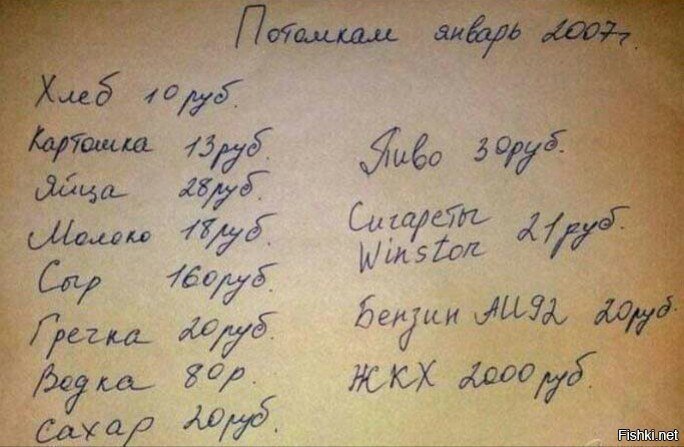 Потомкам январь 2007г.
Хлеб 10руб.
Картошка 13руб.
Яйца 28руб.
Молоко 18руб.
Сыр 160руб.
Гречка 20руб.
Водка 80р.
сахар 20руб.
Пиво 30руб.
Сигареты
Winston 21руб.
Бензин АИ92 20руб.
ЖКХ 2000руб.
Fishki.net